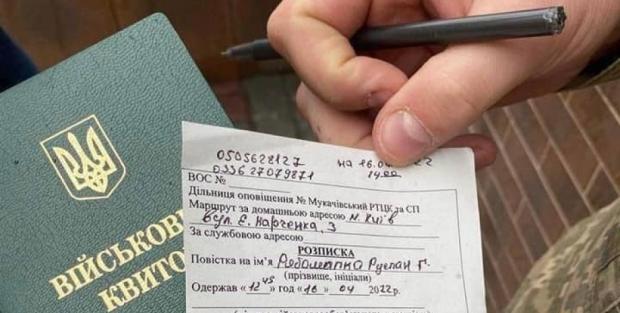 ВІЙСЬКОВИ
КВИТО
0505628127
на 16.0 22
14.00
ВОС №
Дільниця оповіщення № Мукачівський РТЦК та СП
Маршрут за домашньою адресою м. Київ
вул. Е. Марченка, 3
За службовою адресою
РОЗПИСКА
Повістка на ім'я Руслан Г.
(прізвище, ініціали)
Одержав « 12 45 » год « 16 » 04 2022р.